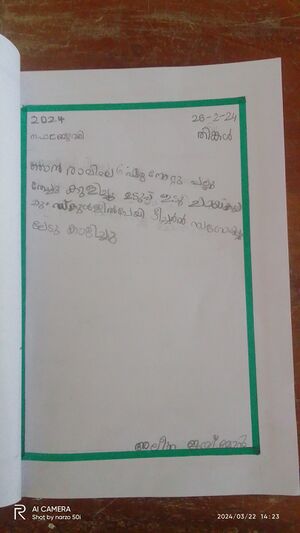 2024 26-2-24
ഫെബ്രുവരി തിങ്കൾ
ഞാൻ രാവിലെ 6 എഴുന്നേറ്റു പല്ലു
തേച്ചു കുളിച്ചു ഉടുപ്പ് ഇട്ടു ചായകുടി
ച്ചു സ്കൂളിൽപോയി ടീച്ചർ
കളിച്ചു
AI CAMERA
Shot by narzo 50i
2024/03/22 14:23